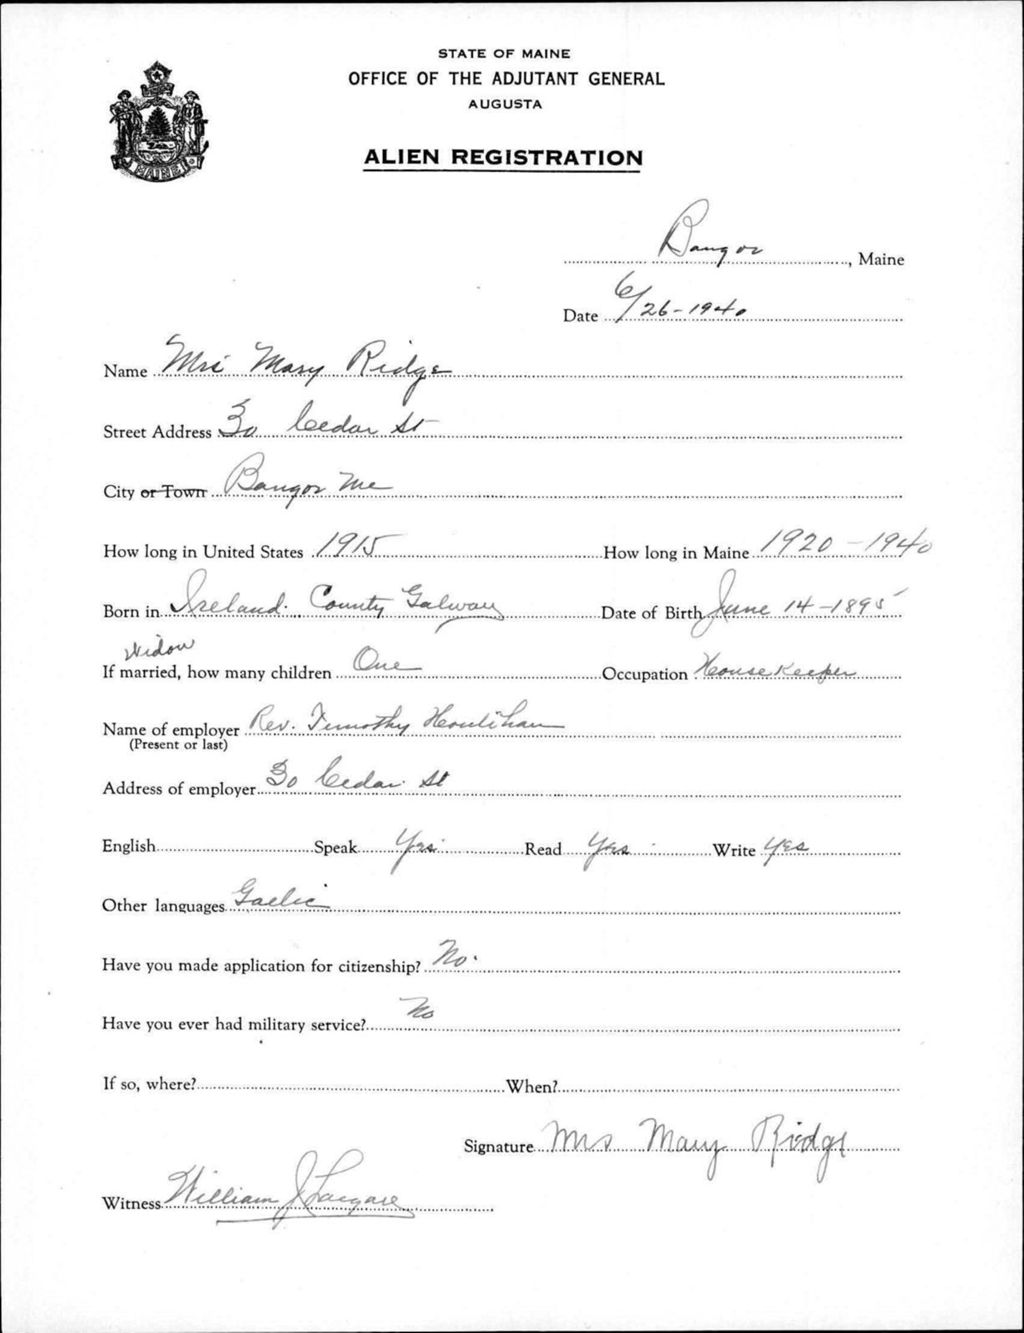 STATE OF MAINE
OFFICE OF THE ADJUTANT GENERAL
AUGUSTA
ALIEN REGISTRATION
MAINE
Bangor, Maine
Date 6/26-1940
Name Mrs Mary Ridge
Street Address 30 Cedar St
City or Town Bangor Me
How long in United States 1915 How long in Maine 1920-1940
Born in Ireland. County Galway Date of Birth June 14-1895
Widow
If married, how many children One Occupation House Keeper
Name of employer Rev. Timothy Houlihan
(Present or last)
Address of employer 30 Cedar St
English Speak Yes Read Yes Write Yes
Other languages Gaelic
Have you made application for citizenship? No.
Have you ever had military service? No
If so, where? When?
Signature Mrs Mary Ridge
Witness William J